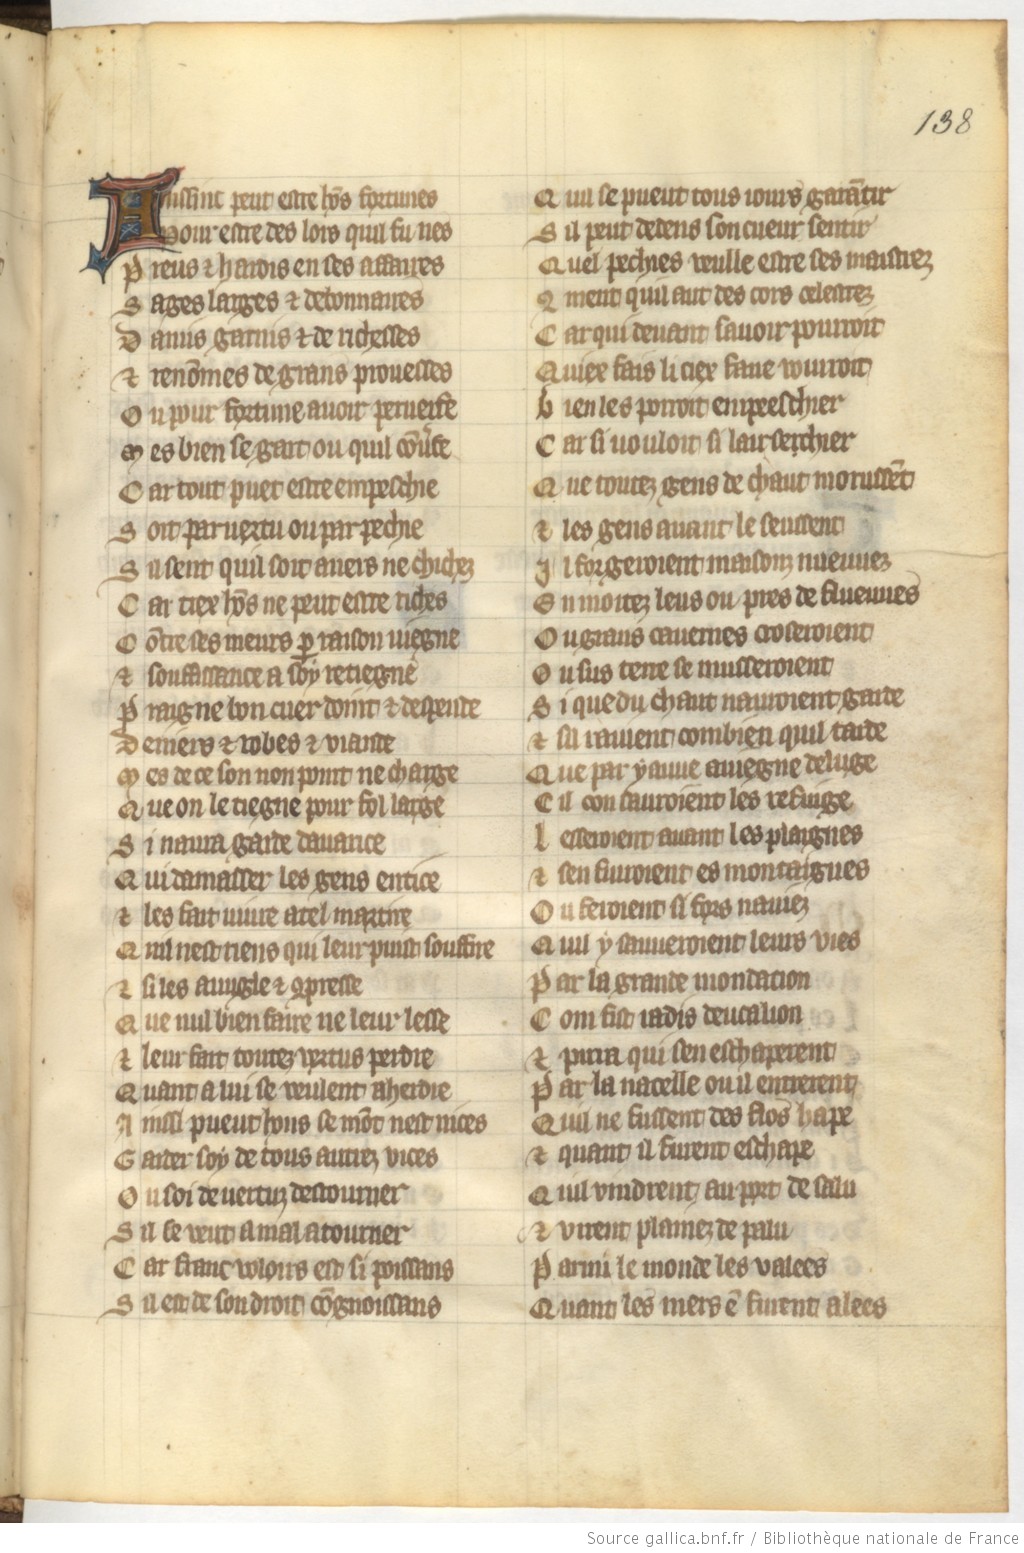 138
Aussinc peut estre hõs fortunes
Pour estre des lors quil fu nes
Preus & hardis en ses affaires
Sages larges & debonnaires
Damis garnis & de richesses
& renõmes de grans prouesses
Ou pour fortune avoir perverse
Mes bien se gart ou quil cõverse
Car tout puet estre empeschie
Soit par vertu ou par pechie
Sil sent quil soit avers ne chichez
Car tiex hõs ne peut estre riches
Cõtre ses meurs p raison viegne
& souffissance a soy retiegne
Praigne bon cuer doint & despende
Deniers & robes & viande
Mes de ce son non point ne charge
Que on le tiegne pour fol large
Si naura garde davarice
Qui damasser les gens entice
& les fait vivre a tel martire
Quil nest riens qui leur puist souffire
& si les avugle & 9presse
Que nul bien faire ne leur lesse
& leur fait toutez vertus perdre
Quant a lui se veulent aherdre
Ainssi pueut hons se mõt nest nices
Garder soy de tous autrez vices
Ou soi de vertuz destourner
Sil se veut a mal atourner
Car franc voloirs est si poissans
Sil est de son droit cõgnoissans
Quil se pueut tous iours garãtir
Sil peut dedens son cueur sentir
Quel pechies veulle estre ses maistrez
9ment quil aut des cors celestrez
Car qui devant savoir pourroit
Quiex fais li ciex faire vourroit
Bien les porroit empeeschier
Car si vouloit si lair sechier
Que toutez gens de chaut morussẽt
& les gens avant le seussent
Il forgeroient maisonz nuevvez
En moitez leus ou pres de fluevves
Ou grans cavernes croseroient
Ou sus terre se musseroient
Si que du chaut nauroient garde
& sil ravient combien quil tarde
Que par yaue aviegne deluge
Cil con sauroient les refuige
Lesseroient avant les plaignes
& sen fuiroient es montaignes
Ou feroient si fors naviez
Quil y sauveroient leurs vies
Par la grande inondacion
Com fist iadis deucalion
& pirra qui sen eschaperent
Par la nacelle ou il entrerent
Quil ne fussent des flos hape
& quant il furent eschape
Quil vindrent au port de salu
& virent plainez de palu
Parmi le monde les valees
Quant les mers ẽ furent alees
Source gallica.bnf.fr / Bibliothèque nationale de France